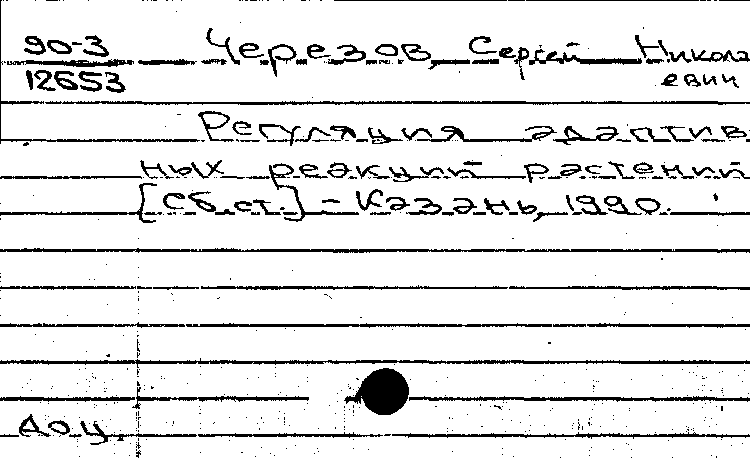 90-3 Черезов, Сергей Никола
12653 евич
Регуляция адаптив
ных реакций растений
[Сб.ст.] - Казань, 1990.
доц.